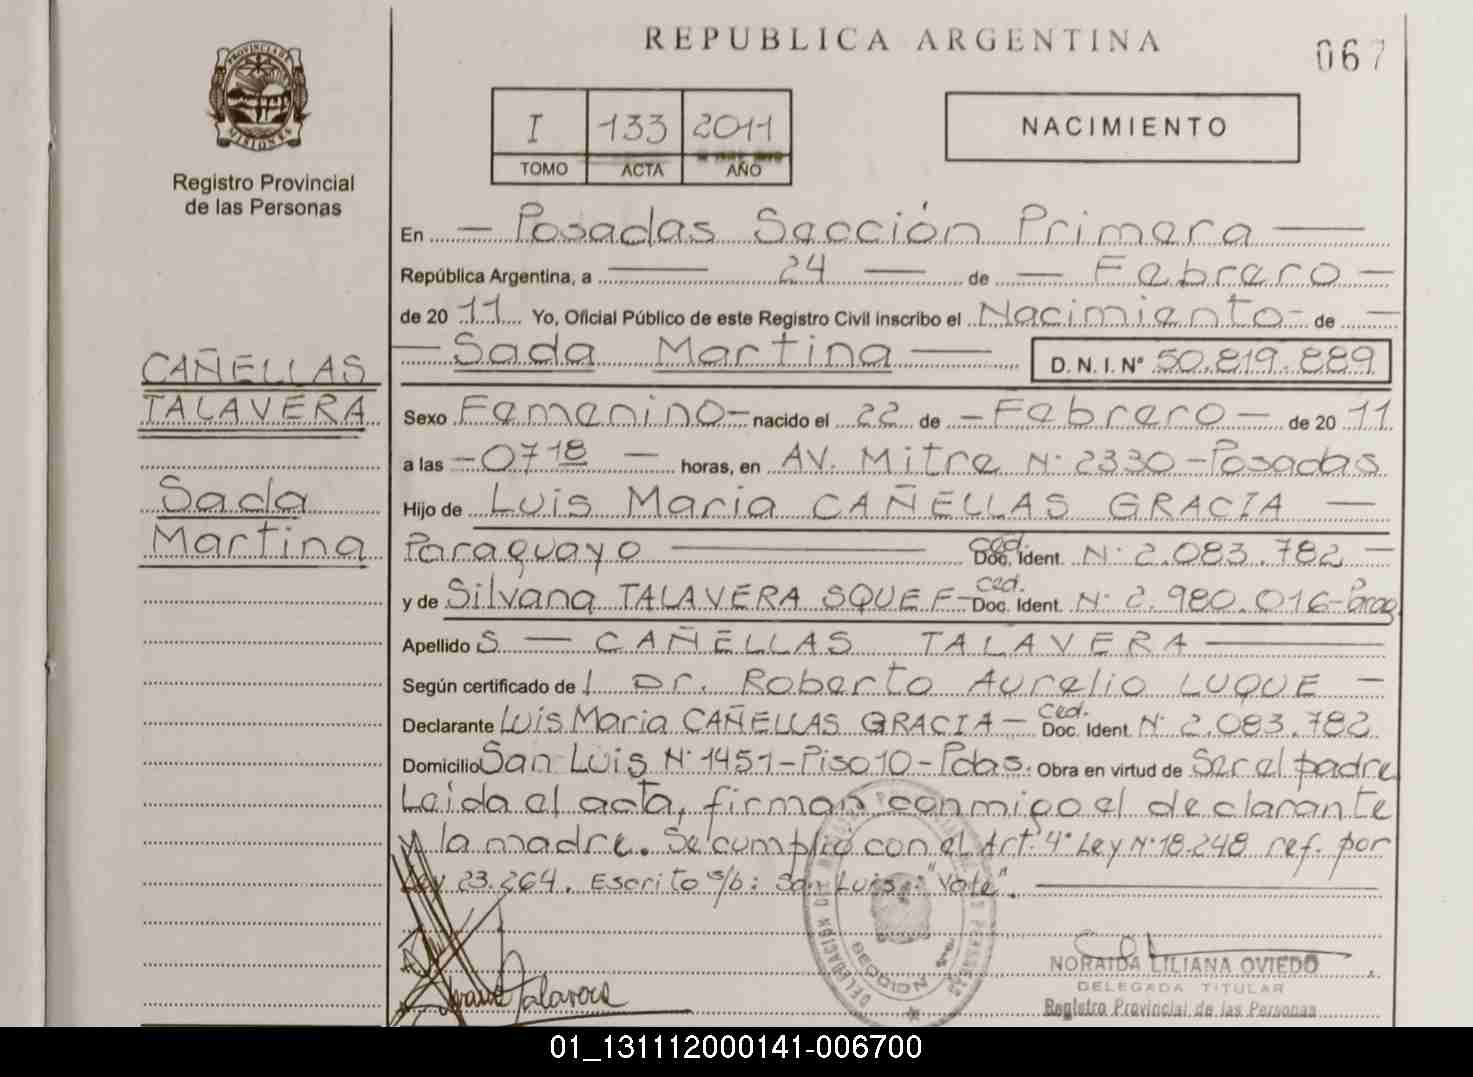 REPUBLICA ARGENTINA
067
PROVINCIA DE
MISIONES
Registro Provincial
de las Personas
I 133 2011
TOMO ACTA AÑO
NACIMIENTO
En — Posadas Sección Primera —
República Argentina, a — 24 — de — Febrero —
de 20 11 Yo, Oficial Público de este Registro Civil inscribo el Nacimiento - de —
— Sada Martina — D. N. I. Nº 50.819.889
CAÑELLAS
TALAVERA
Sada
Martina
Sexo Femenino - nacido el 22 de - Febrero - de 20 11
a las - 0718 - horas, en AV. Mitre Nº 2330 - Posadas
Hijo de Luis Maria CAÑELLAS GRACIA —
Paraguayo — Ced. Doc. Ident. Nº 2.083.782 —
y de Silvana TALAVERA SQUEF - Ced. Doc. Ident. Nº 2.980.016 - Parag
Apellido S — CAÑELLAS TALAVERA —
Según certificado de l Dr. Roberto Aurelio LUQUE —
Declarante Luis Maria CAÑELLAS GRACIA - Ced. Doc. Ident. Nº 2.083.782
Domicilio San Luis Nº 1451 - Piso 10 - Pdas. Obra en virtud de Ser el padre
Leida el acta, firman conmigo el declarante
y la madre. Se cumplio con el Art. 4º Ley Nº 18.248 ref. por
Ley 23.264. Escrito s/b: San Luis: "Vale". —
Silvana Talavera
SECCION 1ra.
NORAIDA LILIANA OVIEDO
DELEGADA TITULAR
Registro Provincial de las Personas
01_131112000141-006700